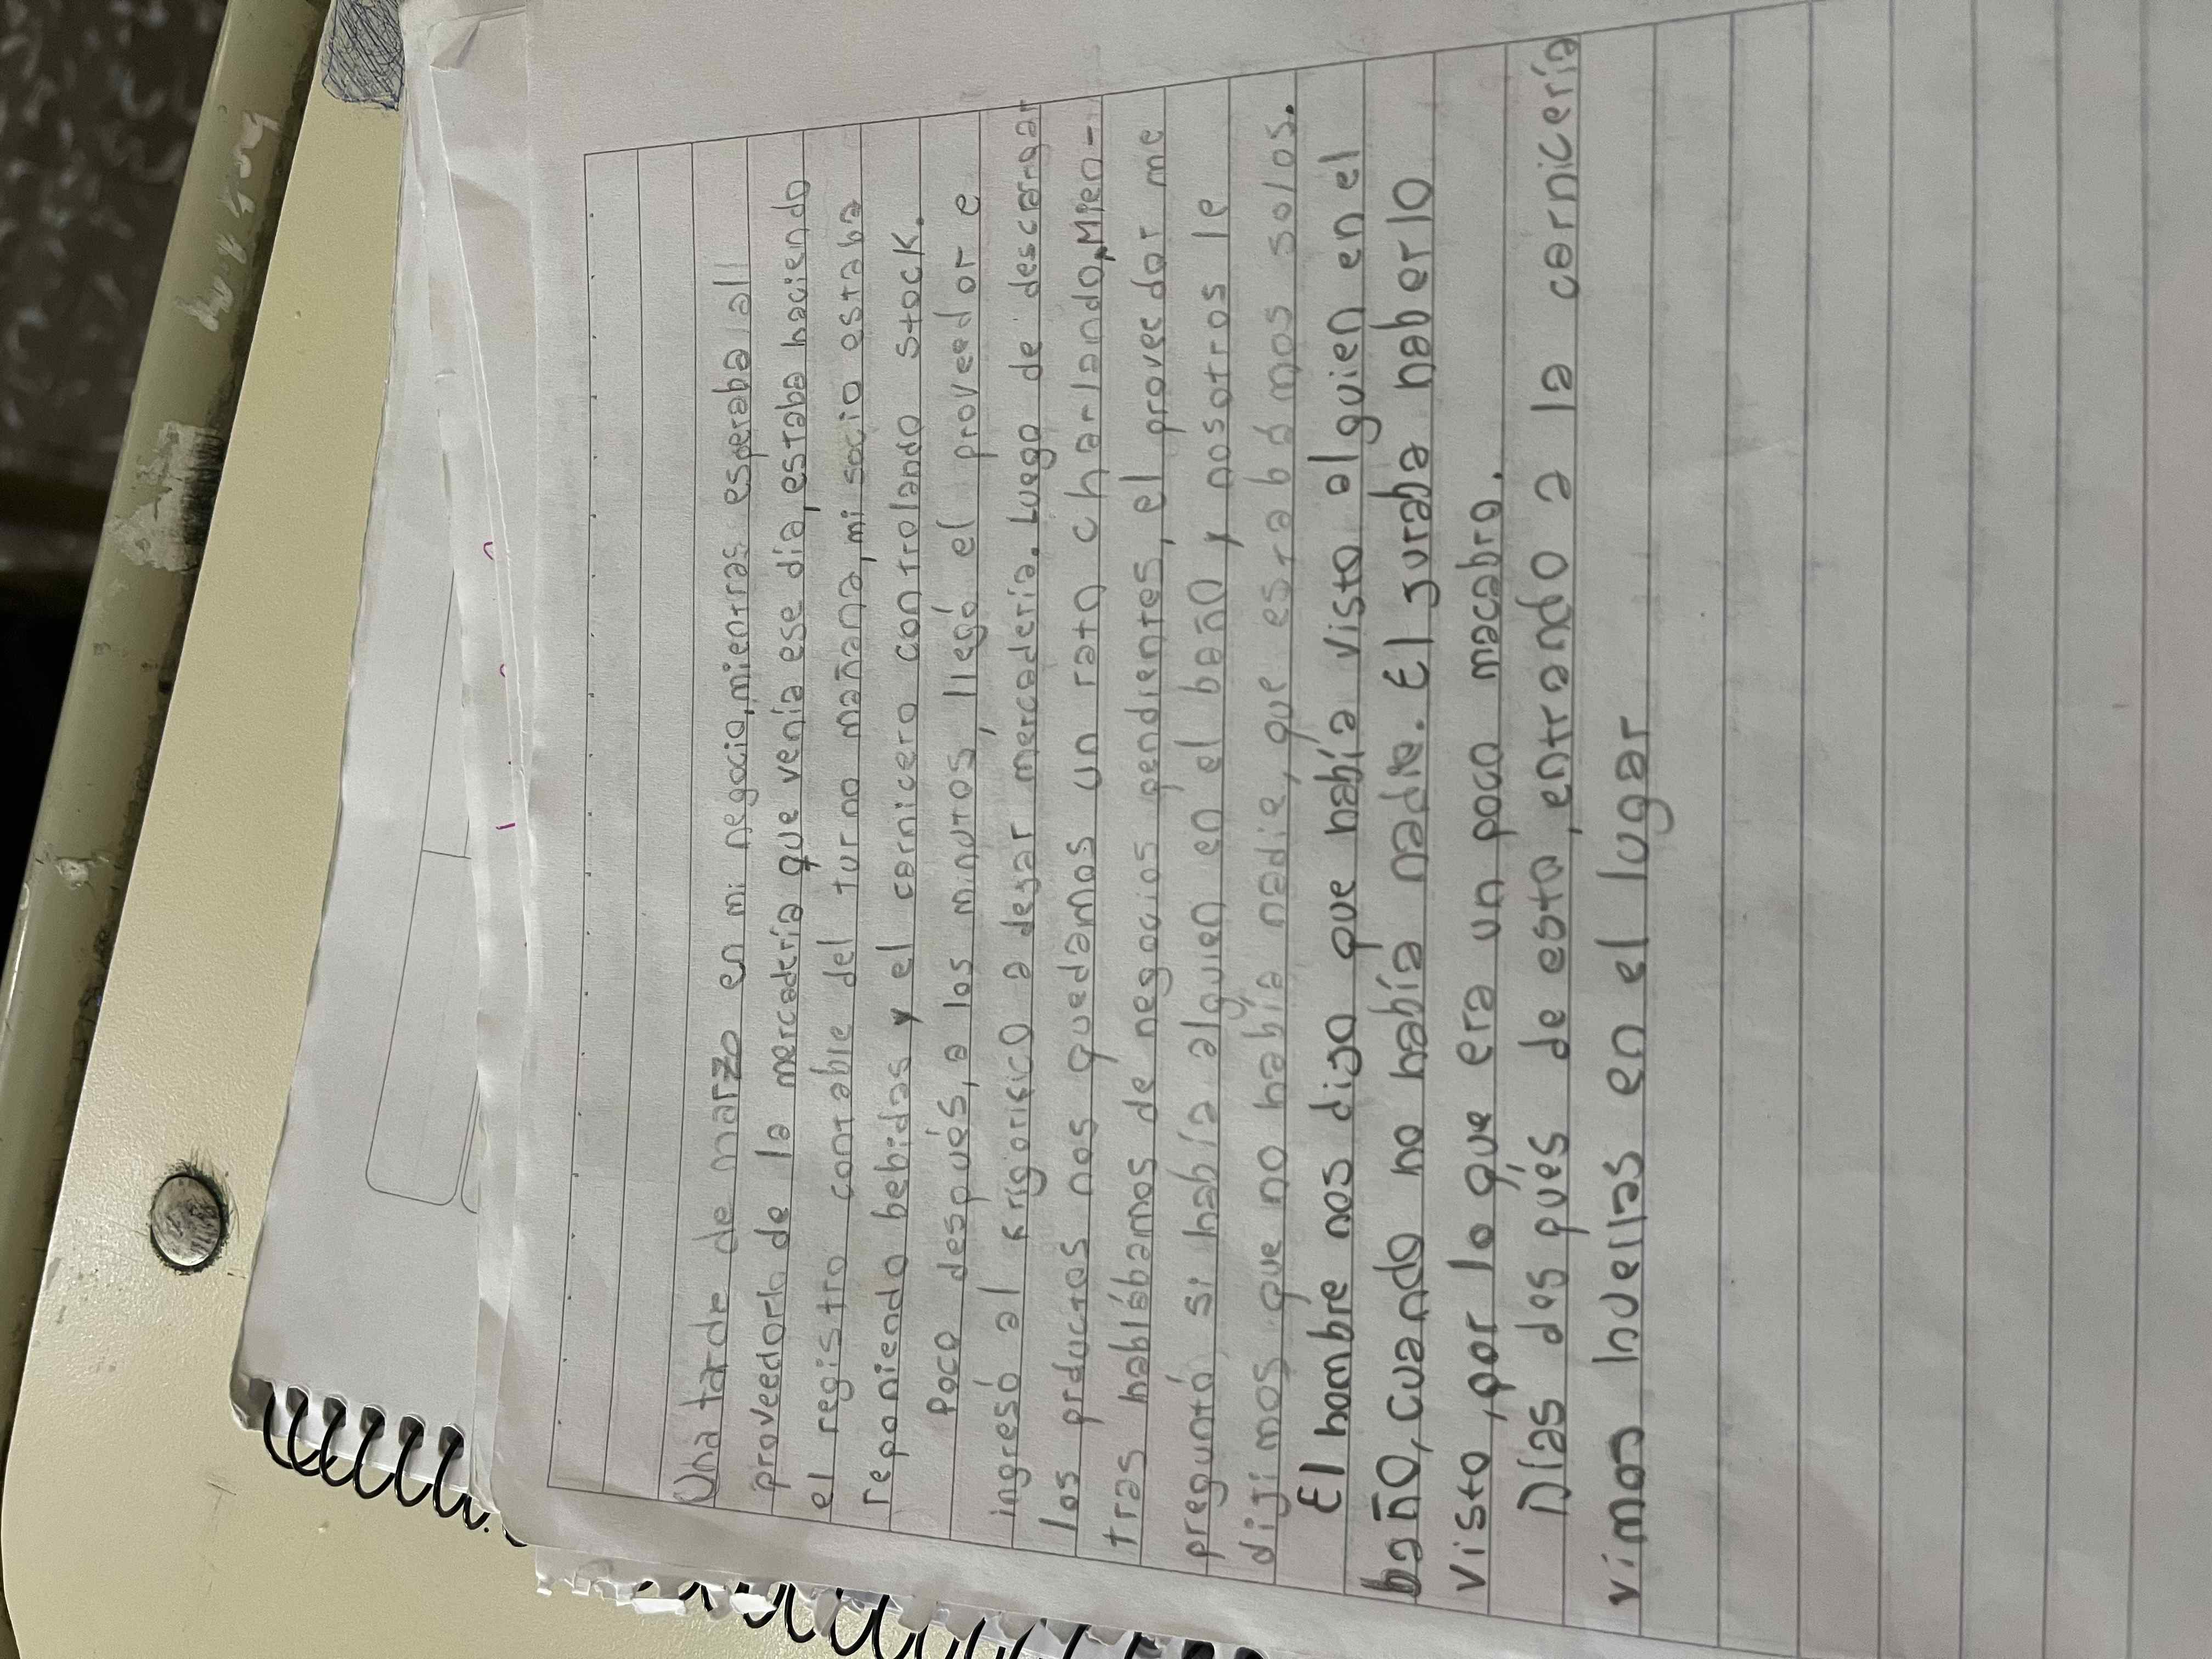 Una tarde de marzo en mi negocio, mientras esperaba al
proveedor de la mercadería que venía ese día, estaba haciendo
el registro contable del turno mañana, mi socio estaba
reponiendo bebidas y el carnicero controlando stock.
Poco después, a los minutos, llegó el proveedor e
ingresó al frigorífico a dejar mercadería. Luego de descargar
los productos nos quedamos un rato charlando, Mien-
tras hablábamos de negocios pendientes, el proveedor me
preguntó si había alguien en el baño y nosotros le
dijimos que no había nadie, que estabamos solos.
El hombre nos dijo que había visto alguien en el
baño, cuando no había nadie. El juraba haberlo
visto, por lo que era un poco macabro.
Días después de esto, entrando a la carnicería
vimos huellas en el lugar